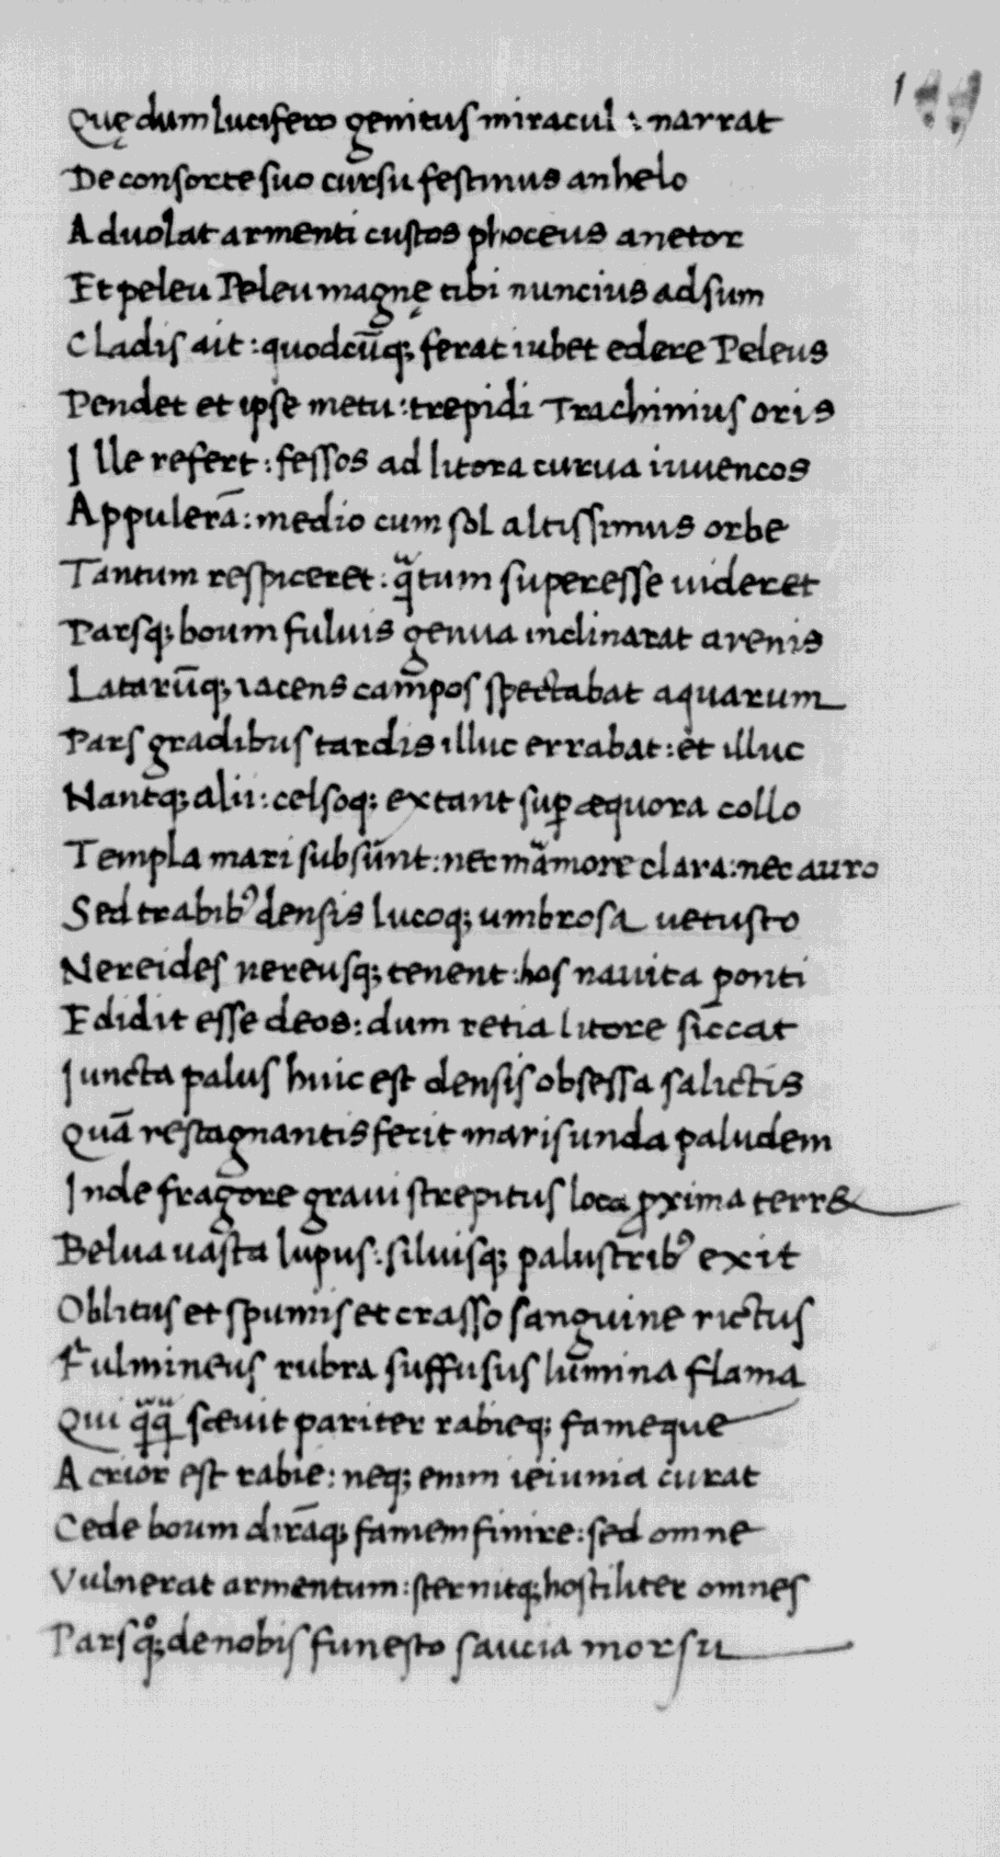 Quę dum lucifero genitus miracul : narrat
De consorte suo cursu festinus anhelo
Aduolat armenti custos phoceus anetor
Et peleu Peleu magnę tibi nuncius adsum
Cladis ait : quodcūq; ferat iubet edere Peleus
Pendet et ipse metu : trepidi Trachinius oris
Ille refert : fessos ad litora curua iuuencos
Appulerā : medio cum sol altissimus orbe
Tantum respiceret : q̃tum superesse uideret
Parsq; boum fuluis genua inclinarat arenis
Latarūq; iacens campos spectabat aquarum
Pars gradibus tardis illuc errabat : et illuc
Nantq; alii : celsoq; extant suꝑ æquora collo
Templa mari subsunt : nec mamore clara : nec auro
Sed trabibꝰ densis lucoq; umbrosa uetusto
Nereides nereusq; tenent : hos nauita ponti
Edidit esse deos : dum retia litore siccat
Iuncta palus huic est densis obsessa salictis
Quā restagnantis fecit maris unda paludem
Inde fragore graui strepitus loca ꝓxima terr&
Belua uasta lupus : siluisq; palustribꝰ exit
Oblitus et spumis et crasso sanguine rictus
Fulmineus rubra suffusus lumina flama
Qui q̃q̃ sæuit pariter rabieq; fameque
Acrior est rabie : neq; enim ieiunia curat
Cede boum dirāq; famem finire : sed omne
Vulnerat armentum : sternitq; hostiliter omnes
Parsq; de nobis funesto saucia morsu